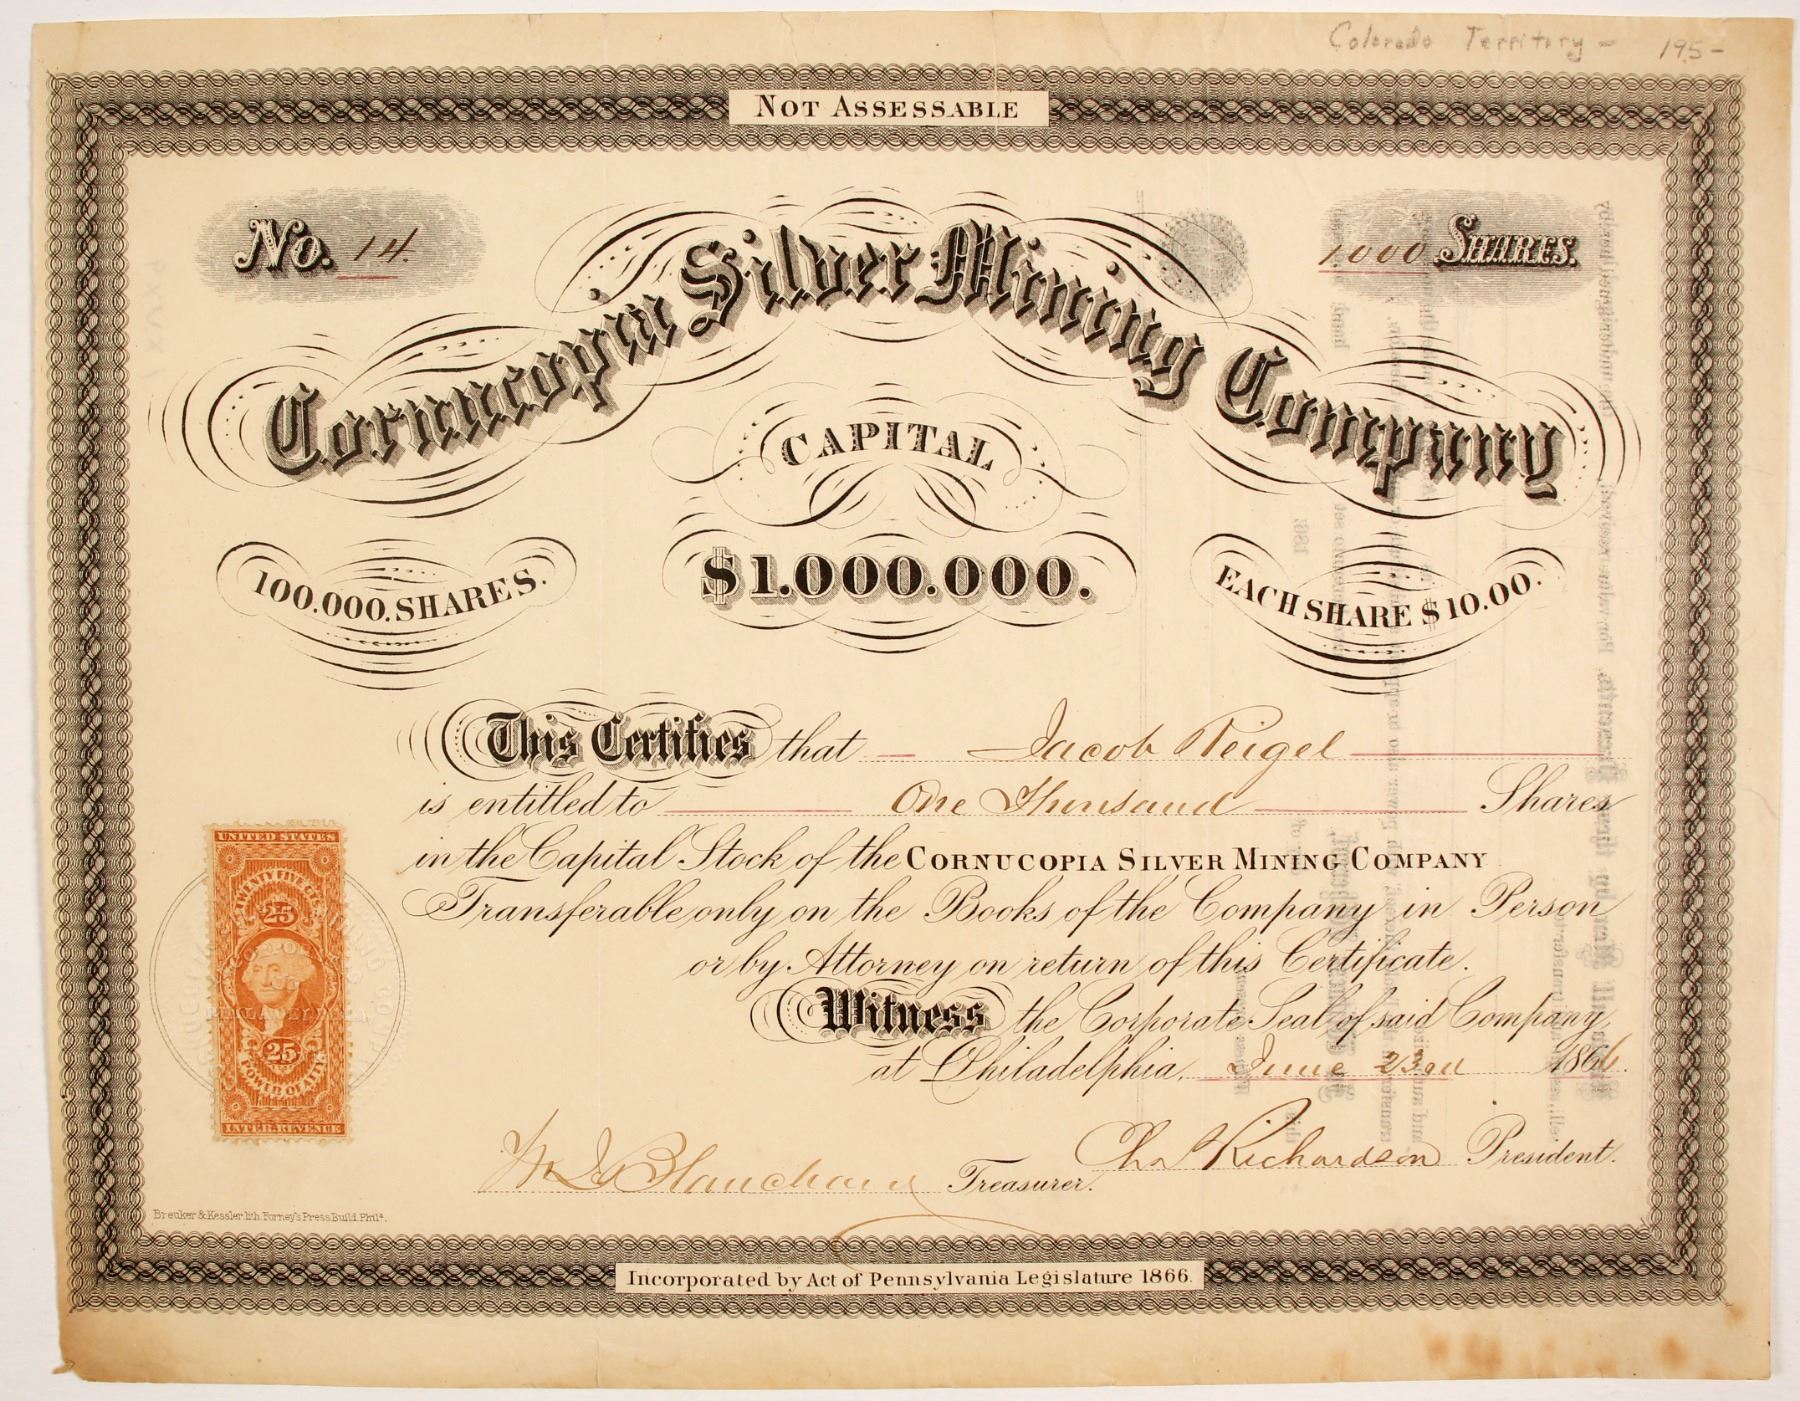 Colorado Territory - 195-
NOT ASSESSABLE
No. 14.
1000 SHARES.
Cornucopia Silver Mining Company
CAPITAL
100.000. SHARES.
$1.000.000.
EACH SHARE $10.00.
This Certifies that Jacob Reigel
is entitled to One Thousand Shares
in the Capital Stock of the CORNUCOPIA SILVER MINING COMPANY
Transferable only on the Books of the Company in Person
or by Attorney on return of this Certificate.
Witness the Corporate Seal of said Company
at Philadelphia, June 23rd 1866.
UNITED STATES
TWENTY FIVE CTS.
25
25
POWER OF ATT'Y
INTER. REVENUE
Blanchard Treasurer.
Richardson President.
Breuker & Kessler lith. Forney's Press Build. Phila.
Incorporated by Act of Pennsylvania Legislature 1866.